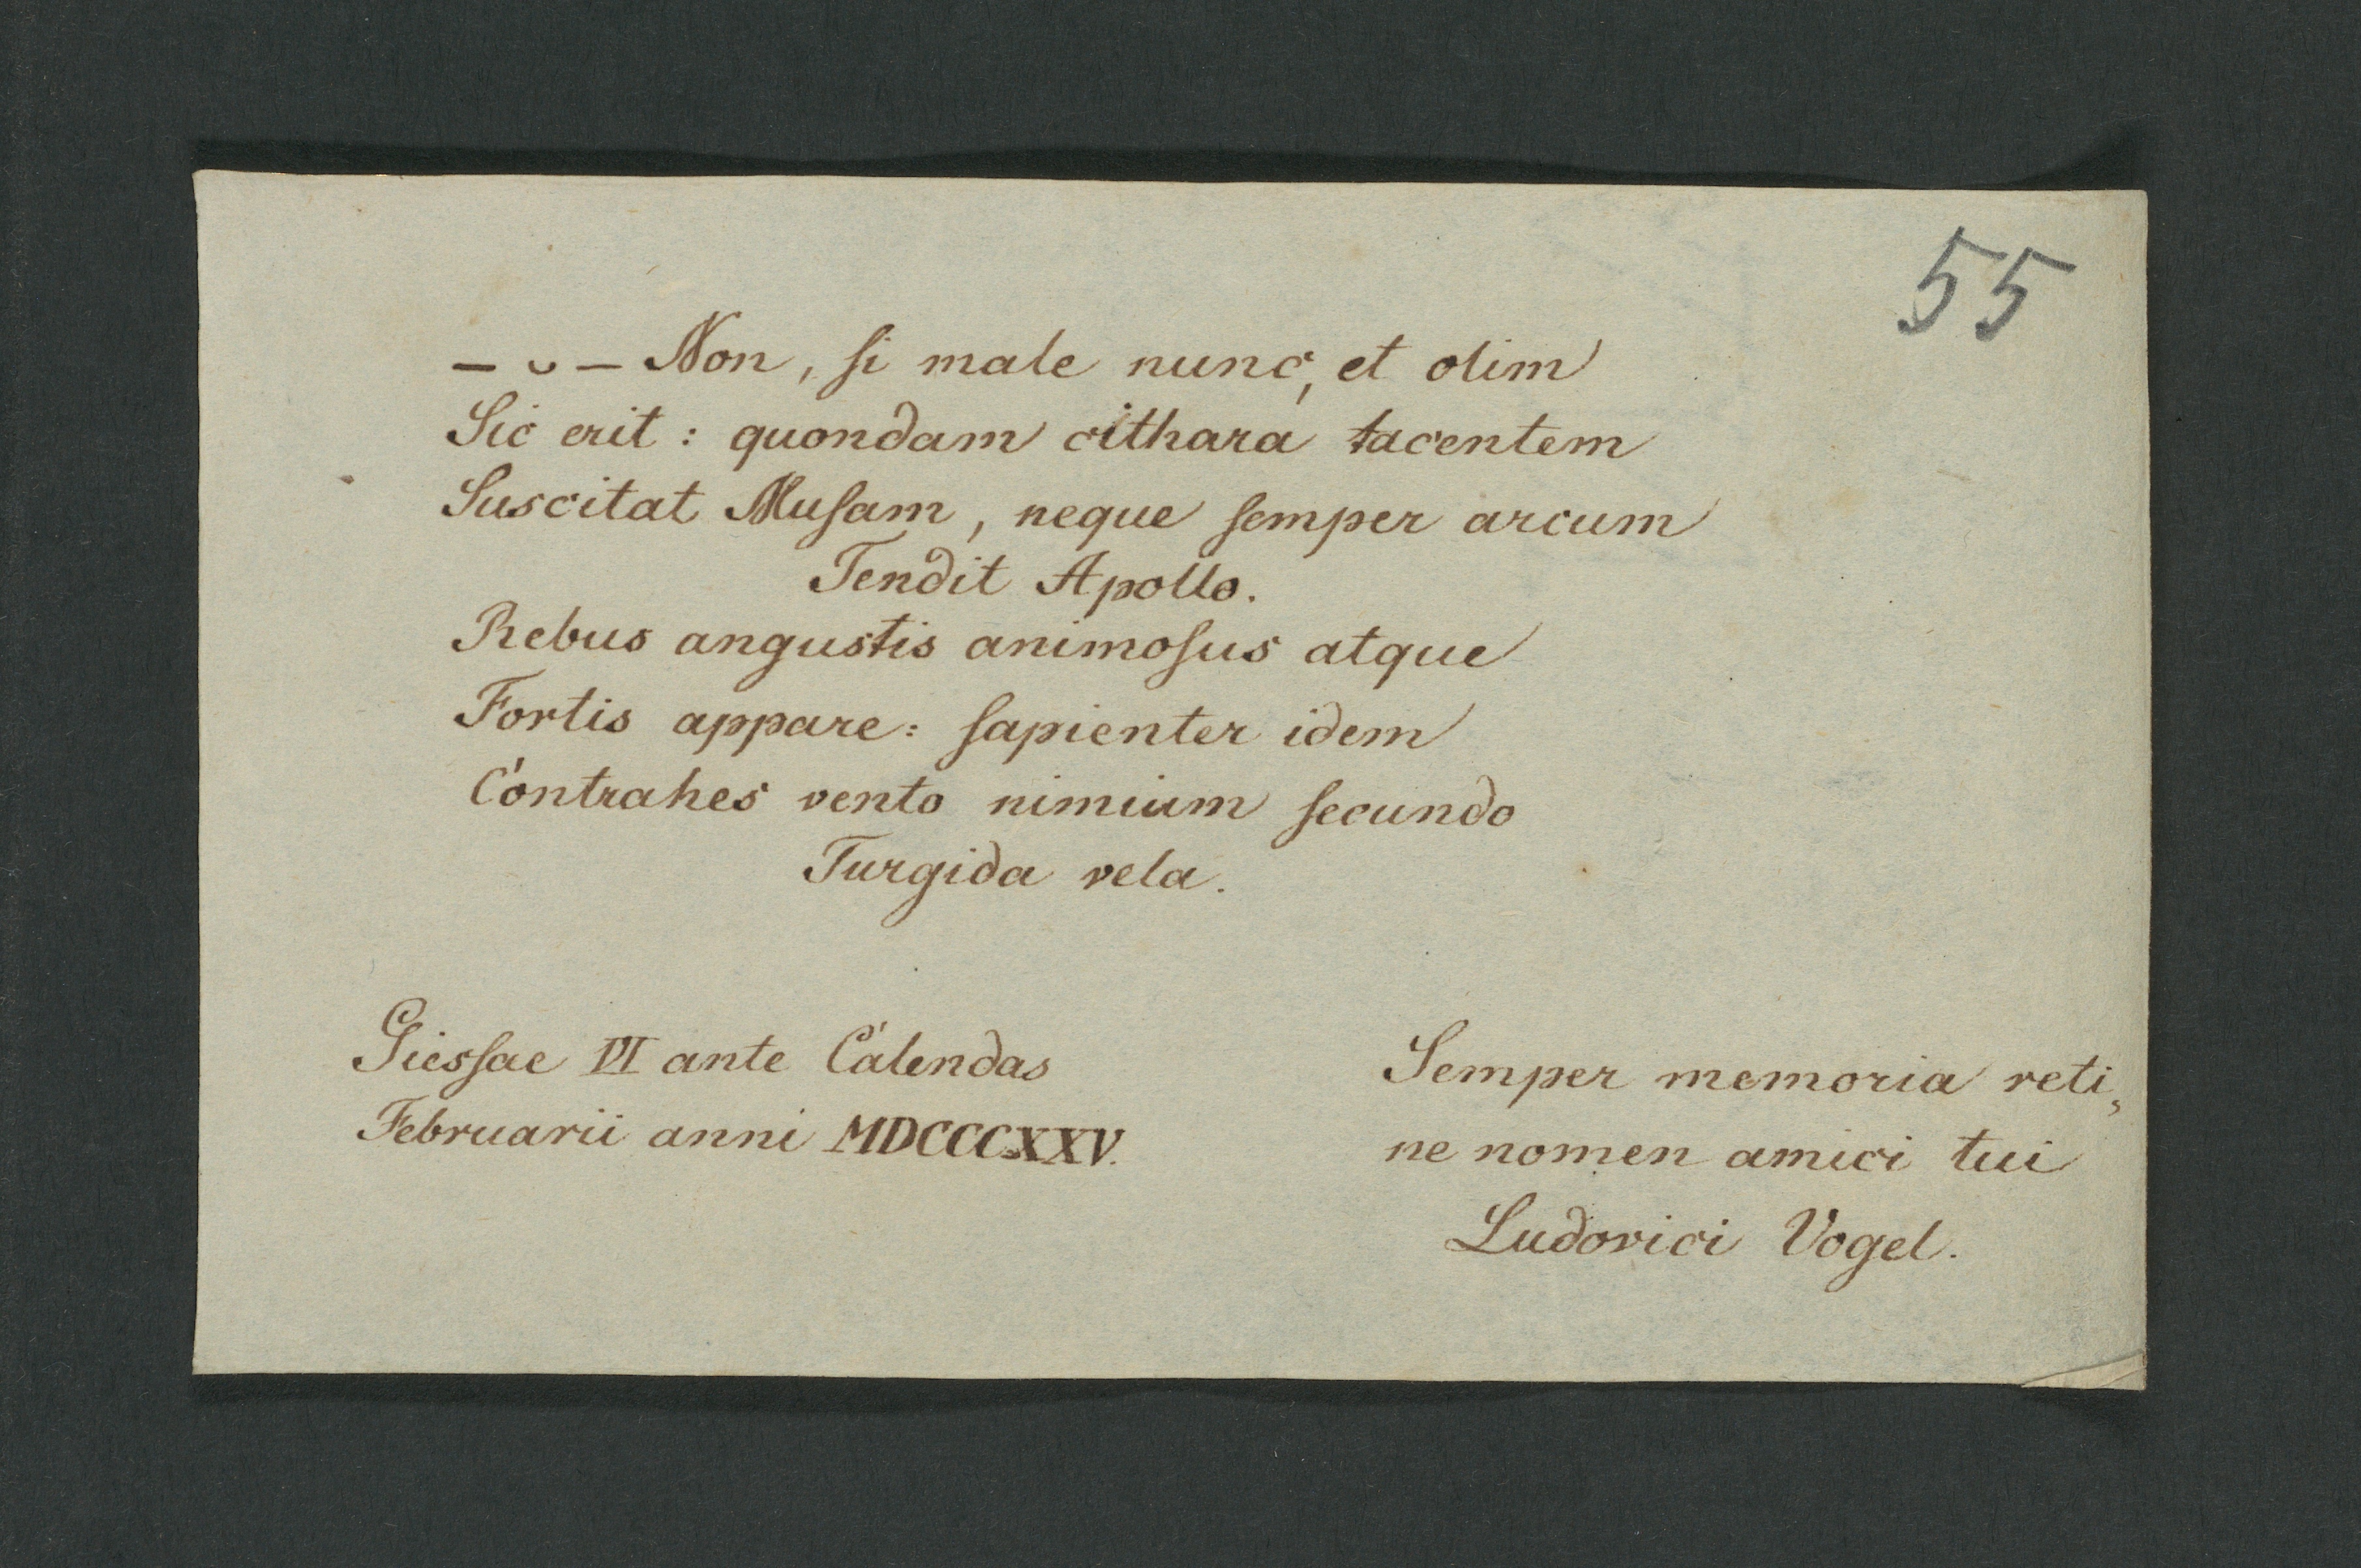 55
– ᴗ – Non, ſi male nunc, et olim
Sic erit: quondam cithara tacentem
Suscitat Muſam, neque ſemper arcum
Tendit Apollo.
Rebus angustis animoſus atque
Fortis appare: ſapienter idem
Contrahes vento nimium ſecundo
Turgida vela.
Giesſae VI ante Calendas
Februarii anni MDCCCXXV.
Semper memoria reti„
ne nomen amici tui
Ludovici Vogel.